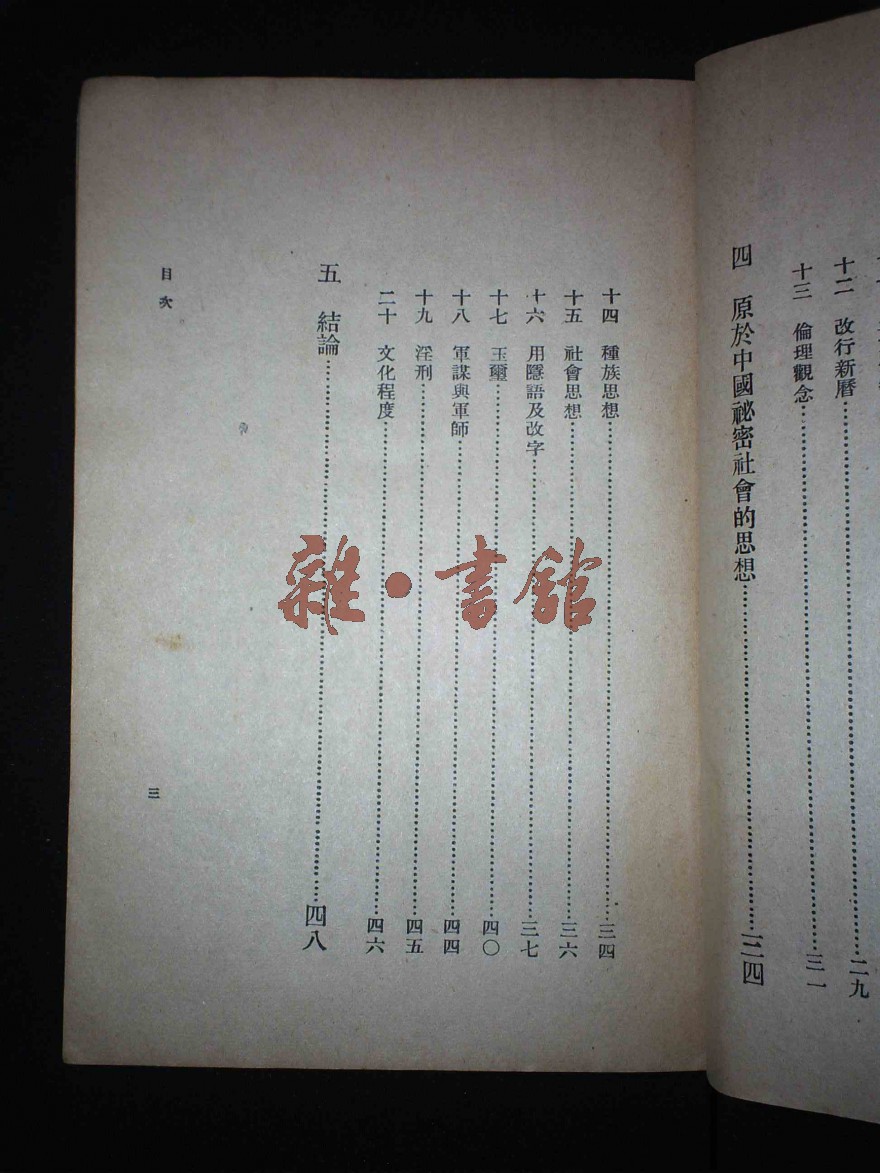 十二 改行新曆……二九
十三 倫理觀念……三一
四 原於中國祕密社會的思想……三四
十四 種族思想……三四
十五 社會思想……三六
十六 用隱語及改字……三七
十七 玉璽……四〇
十八 軍謀與軍師……四四
十九 淫刑……四五
二十 文化程度……四六
五 結論……四八
目次
三
雜·書館